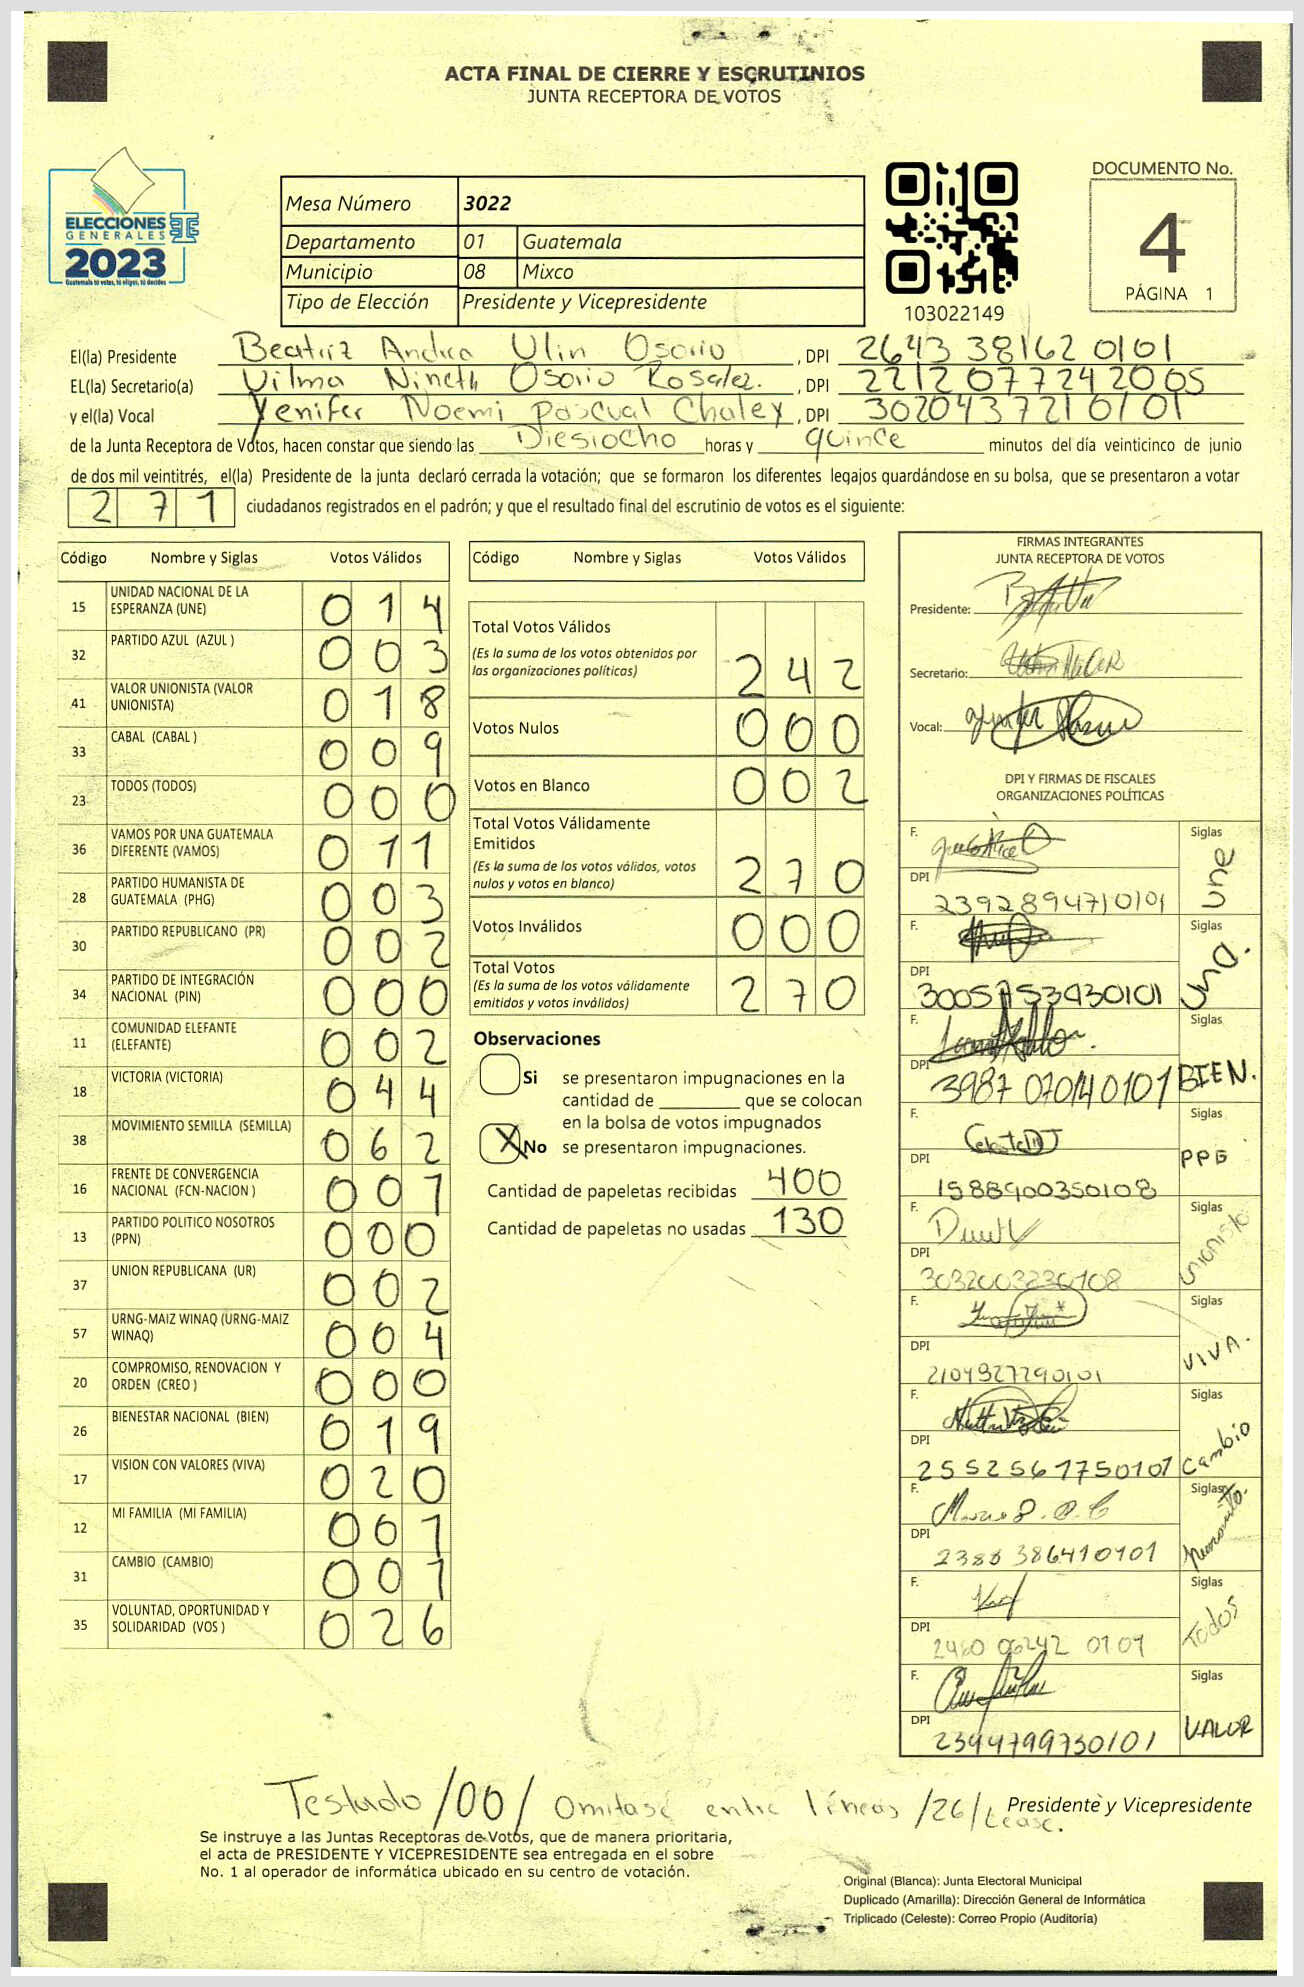 ACTA FINAL DE CIERRE Y ESCRUTINIOS
JUNTA RECEPTORA DE VOTOS
ELECCIONES
GENERALES
2023
Guatemala tú votas, tú eliges, tú decides
Mesa Número 3022
Departamento 01 Guatemala
Municipio 08 Mixco
Tipo de Elección Presidente y Vicepresidente
103022149
DOCUMENTO No.
4
PÁGINA 1
El(la) Presidente Beatriz Andrea Ulin Osorio, DPI 2643 38162 0101
EL(la) Secretario(a) Vilma Nineth Osorio Rosalez., DPI 2212 07724 2005
y el(la) Vocal Yenifer Noemi Pascual Chaley, DPI 3020437210101
de la Junta Receptora de Votos, hacen constar que siendo las Diesiocho horas y quince minutos del día veinticinco de junio
de dos mil veintitrés, el(la) Presidente de la junta declaró cerrada la votación; que se formaron los diferentes legajos guardándose en su bolsa, que se presentaron a votar
271 ciudadanos registrados en el padrón; y que el resultado final del escrutinio de votos es el siguiente:
Código Nombre y Siglas Votos Válidos
15 UNIDAD NACIONAL DE LA ESPERANZA (UNE) 014
32 PARTIDO AZUL (AZUL ) 003
41 VALOR UNIONISTA (VALOR UNIONISTA) 018
33 CABAL (CABAL ) 009
23 TODOS (TODOS) 000
36 VAMOS POR UNA GUATEMALA DIFERENTE (VAMOS) 011
28 PARTIDO HUMANISTA DE GUATEMALA (PHG) 003
30 PARTIDO REPUBLICANO (PR) 002
34 PARTIDO DE INTEGRACIÓN NACIONAL (PIN) 000
11 COMUNIDAD ELEFANTE (ELEFANTE) 002
18 VICTORIA (VICTORIA) 044
38 MOVIMIENTO SEMILLA (SEMILLA) 062
16 FRENTE DE CONVERGENCIA NACIONAL (FCN-NACION ) 001
13 PARTIDO POLITICO NOSOTROS (PPN) 000
37 UNION REPUBLICANA (UR) 002
57 URNG-MAIZ WINAQ (URNG-MAIZ WINAQ) 004
20 COMPROMISO, RENOVACION Y ORDEN (CREO ) 000
26 BIENESTAR NACIONAL (BIEN) 019
17 VISION CON VALORES (VIVA) 020
12 MI FAMILIA (MI FAMILIA) 001
31 CAMBIO (CAMBIO) 001
35 VOLUNTAD, OPORTUNIDAD Y SOLIDARIDAD (VOS ) 026
Código Nombre y Siglas Votos Válidos
Total Votos Válidos
(Es la suma de los votos obtenidos por las organizaciones políticas) 242
Votos Nulos 000
Votos en Blanco 002
Total Votos Válidamente Emitidos
(Es la suma de los votos válidos, votos nulos y votos en blanco) 270
Votos Inválidos 000
Total Votos
(Es la suma de los votos válidamente emitidos y votos inválidos) 270
Observaciones
Si se presentaron impugnaciones en la
cantidad de ________ que se colocan
en la bolsa de votos impugnados
X No se presentaron impugnaciones.
Cantidad de papeletas recibidas 400
Cantidad de papeletas no usadas 130
FIRMAS INTEGRANTES
JUNTA RECEPTORA DE VOTOS
Presidente:
Secretario:
Vocal:
DPI Y FIRMAS DE FISCALES
ORGANIZACIONES POLÍTICAS
F. Siglas une
DPI 2392894710101
F. Siglas
DPI
F. Siglas BIEN.
DPI 3987 070140101
F. Siglas PPG
DPI 1588900350108
F. Siglas Unionista
DPI 3032003230108
F. Siglas VIVA.
DPI 2104927290101
F. Siglas Cambio
DPI 2552561750101
F. Siglas
DPI 2388 386410101
F. Siglas Todos
DPI 2460 06242 0101
F. Siglas VALOR
DPI 2394799730101
Testado /00/ Omitase entre líneas /26/ Lease.
Presidente y Vicepresidente
Se instruye a las Juntas Receptoras de Votos, que de manera prioritaria,
el acta de PRESIDENTE Y VICEPRESIDENTE sea entregada en el sobre
No. 1 al operador de informática ubicado en su centro de votación.
Original (Blanca): Junta Electoral Municipal
Duplicado (Amarilla): Dirección General de Informática
Triplicado (Celeste): Correo Propio (Auditoría)